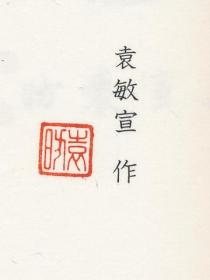 袁敏宣 作
袁